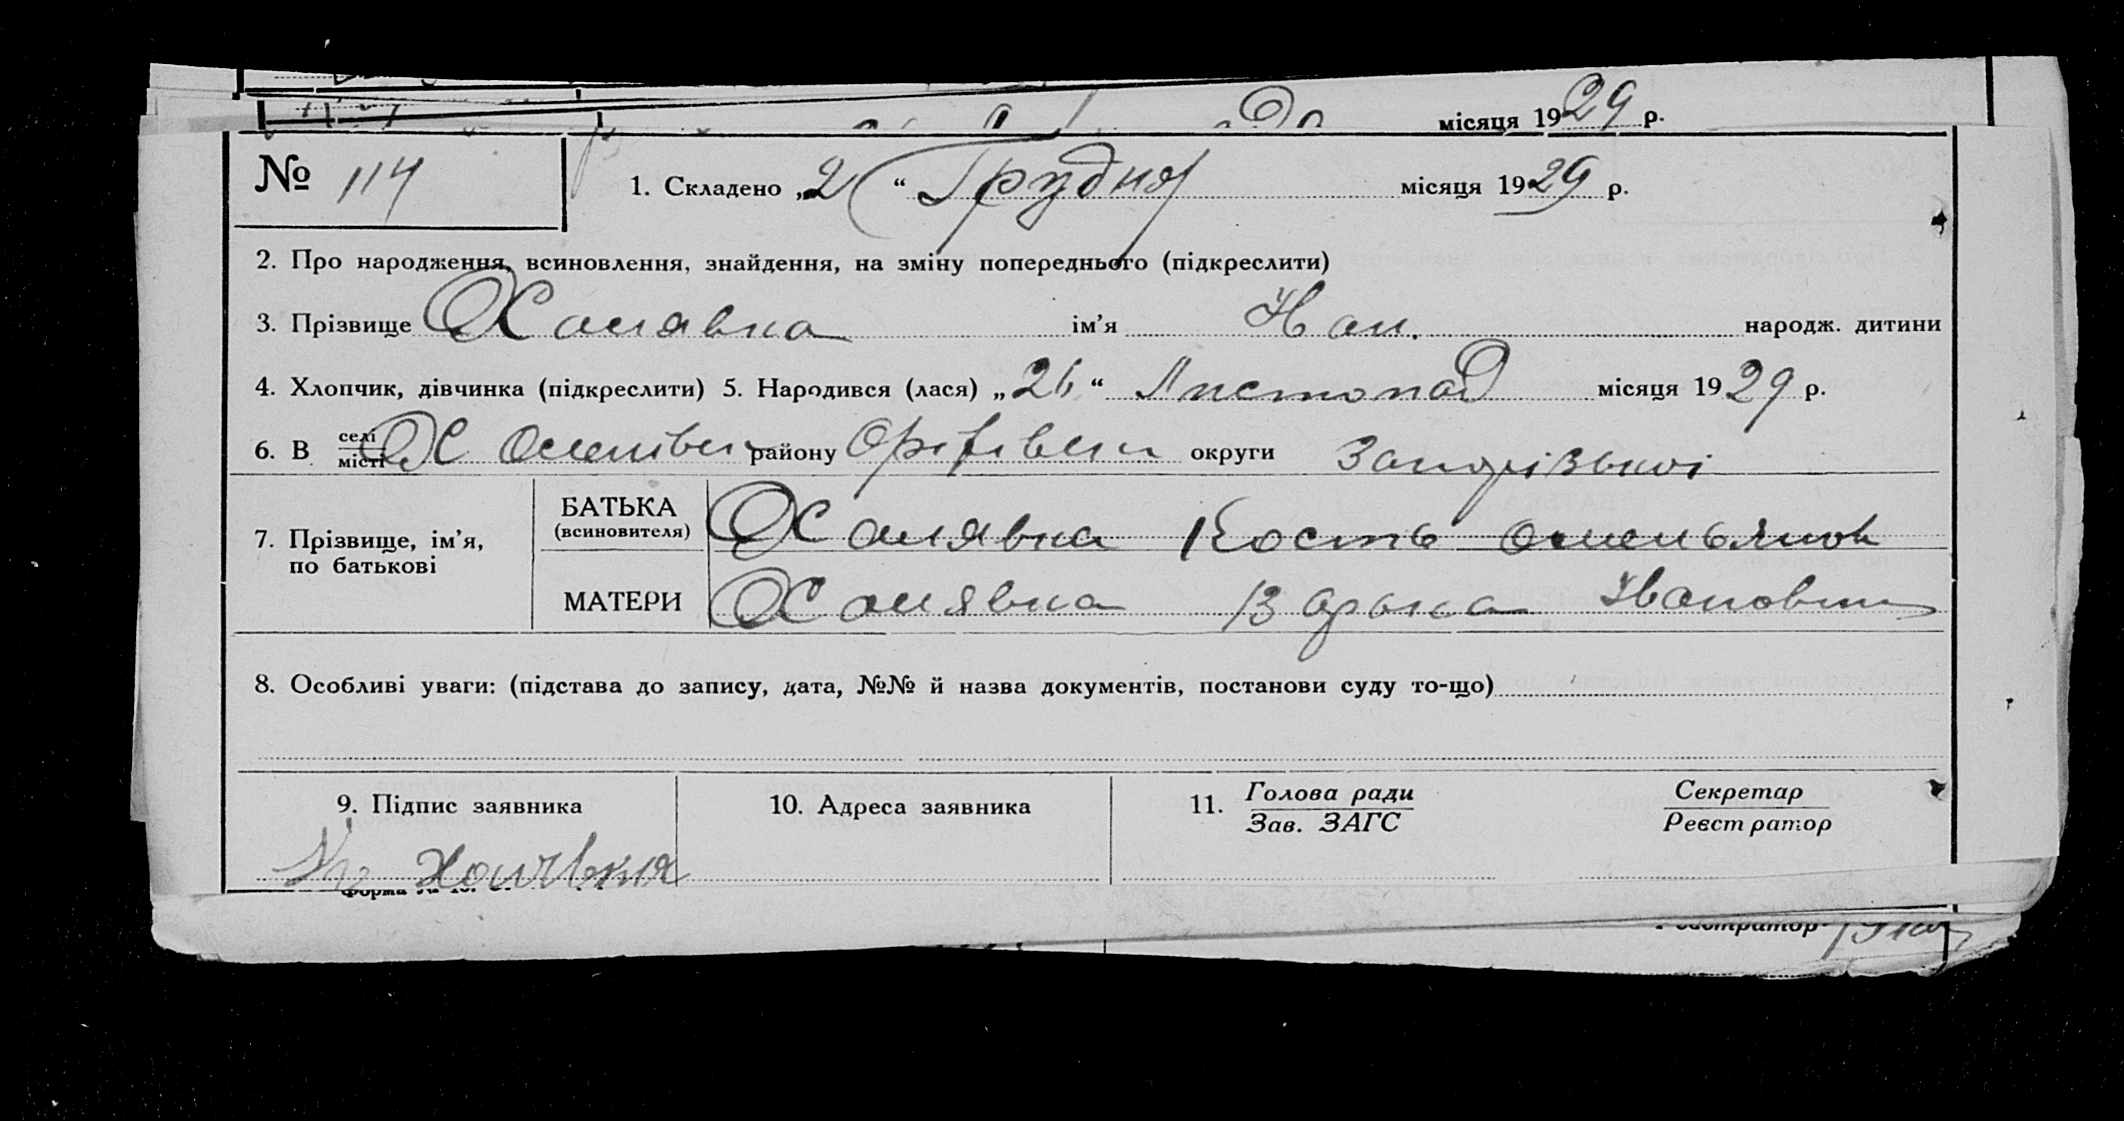 місяця 1929 р.
№ 114
1. Складено „2“ Грудня місяця 1929 р.
2. Про народження, всиновлення, знайдення, на зміну попереднього (підкреслити)
3. Прізвище Халявка ім’я Иван. народж. дитини
4. Хлопчик, дівчинка (підкреслити) 5. Народився (лася) „26“ Листопад місяця 1929 р.
6. В селі/місті району округи Запорізької
7. Прізвище, ім’я, по батькові
БАТЬКА (всиновителя) Халявка Кость Омельянов
МАТЕРИ Халявка Варька Ивановна
8. Особливі уваги: (підстава до запису, дата, №№ й назва документів, постанови суду то-що)
9. Підпис заявника 10. Адреса заявника 11. Голова ради Секретар
Зав. ЗАГС Реєстратор
Халявка
Форма №
Реєстратор